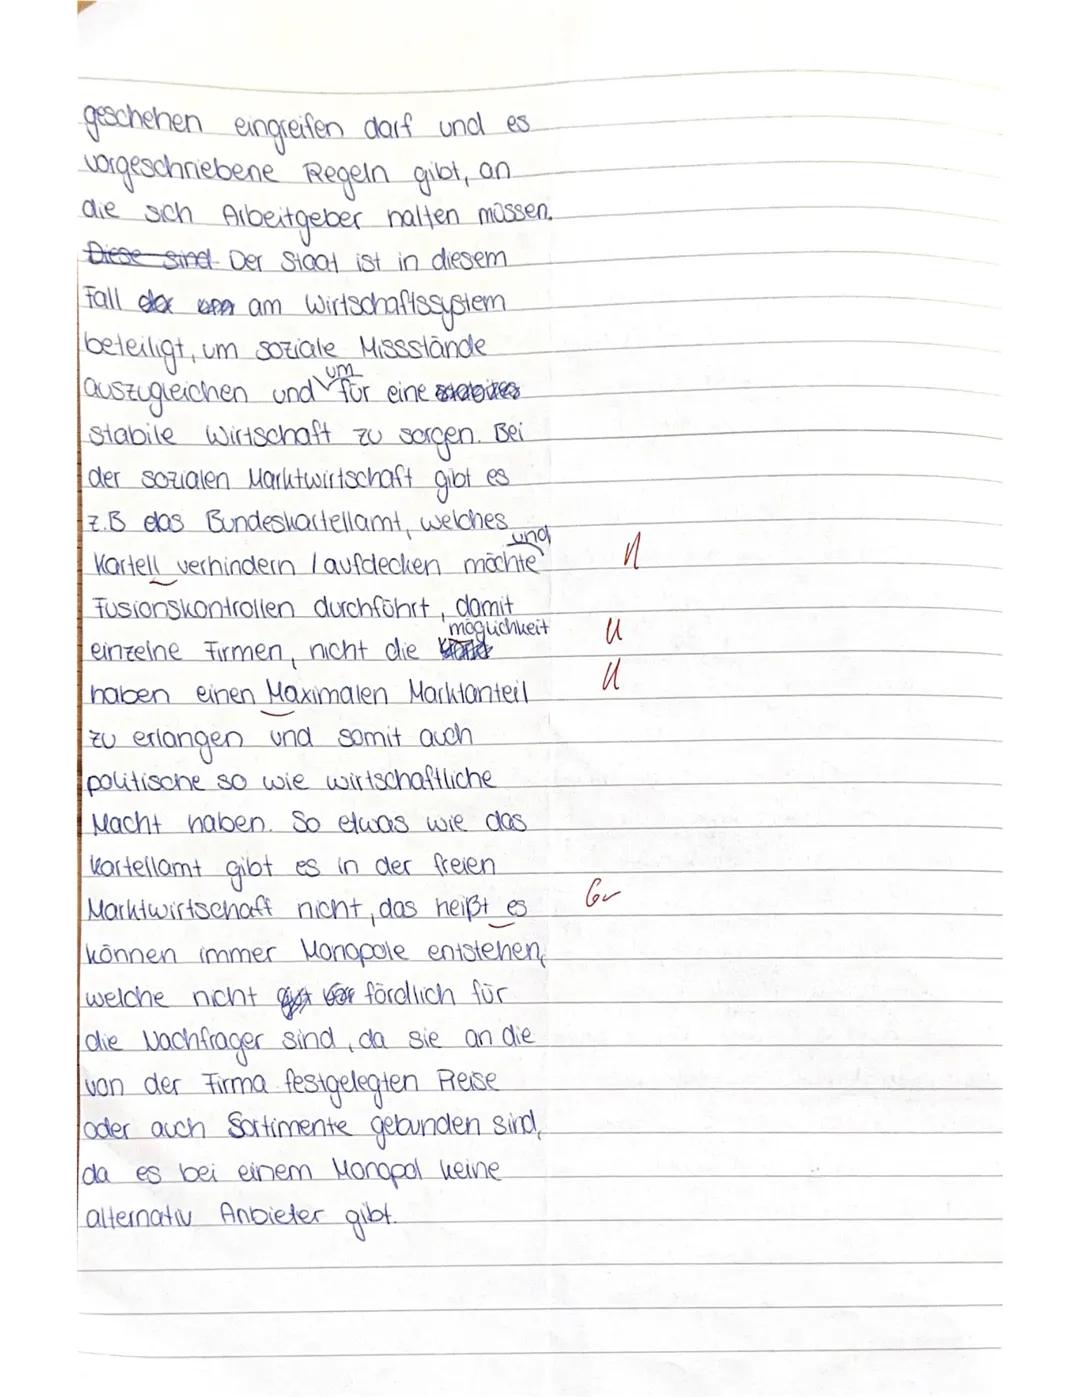 geschehen eingreifen darf und es
vorgeschriebene Regeln gibt, an
die sich Arbeitgeber halten müssen.
Diese sind Der Staat ist in diesem
Fall am Wirtschaftssystem
beteiligt, um soziale Missstände
um
auszugleichen und für eine
stabile Wirtschaft zu sorgen. Bei
der sozialen Marktwirtschaft gibt es
z.B das Bundeskartellamt, welches
und
Kartell verhindern / aufdecken möchte
Fusionskontrollen durchführt, damit
möglichkeit
einzelne Firmen, nicht die
haben einen Maximalen Marktanteil
zu erlangen und somit auch
politische so wie wirtschaftliche
Macht haben. So etwas wie das
Kartellamt gibt es in der freien
Marktwirtschaft nicht, das heißt es Gr
können immer Monopole entstehen,
welche nicht fördlich für
die Nachfrager sind, da sie an die
von der Firma festgelegten Preise
oder auch Sortimente gebunden sind,
da es bei einem Monopol keine
alternativ Anbieter gibt.